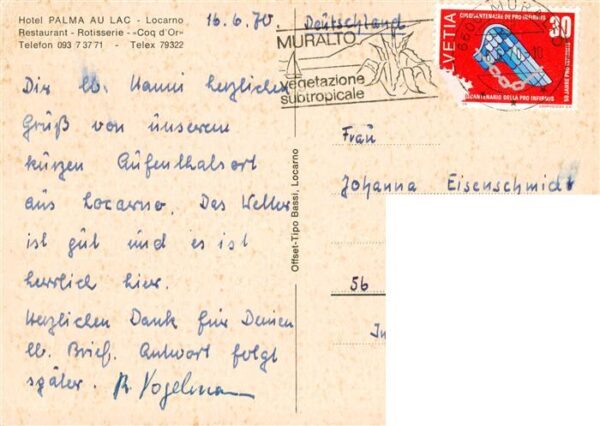 Hotel PALMA AU LAC - Locarno
Restaurant - Rotisserie - «Coq d'Or»
Telefon 093 7 37 71 - Telex 79322
16.6.70
Deutschland
Dir lb. Hanni herzlichen
Grüß von ünserem
kürzen Aüfenthalsort
aüs Locarno. Das Wetter
ist güt ünd es ist
herrlich hier.
Herzlichen Dank für Deinen
lb. Brief. Antwort folgt
später. R. Vogelmann
Offset-Tipo Bassi, Locarno
MURALTO
vegetazione
subtropicale
HELVETIA
30
CINQUANTENAIRE DE PRO INFIRMIS
CINQUANTENARIO DELLA PRO INFIRMIS
50 JAHRE PRO INFIRMIS
Frau
Johanna Eisenschmidt
56